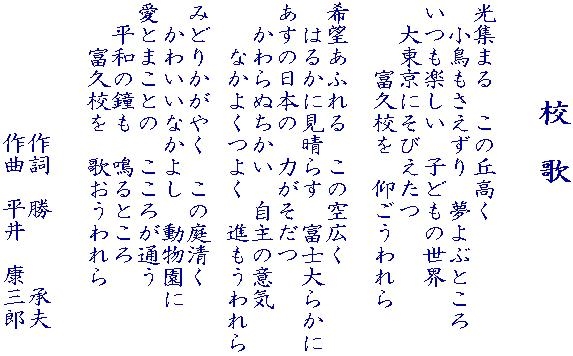 校歌
光集まる この丘高く
小鳥もさえずり 夢よぶところ
いつも楽しい 子どもの世界
大東京にそびえたつ
富久校を 仰ごうわれら
希望あふれる この空広く
はるかに見晴らす 富士大らかに
あすの日本の 力がそだつ
かわらぬちかい 自主の意気
なかよくつよく 進もうわれら
みどりかがやく この庭清く
かわいいなかよし 動物園に
愛とまことの こころが通う
平和の鐘も 鳴るところ
富久校を 歌おうわれら
作詞 勝 承夫
作曲 平井 康三郎